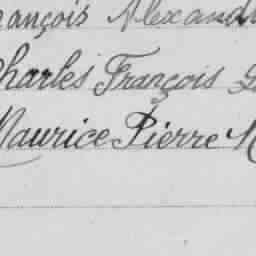 François Alexand
Charles François
Maurice Pierre